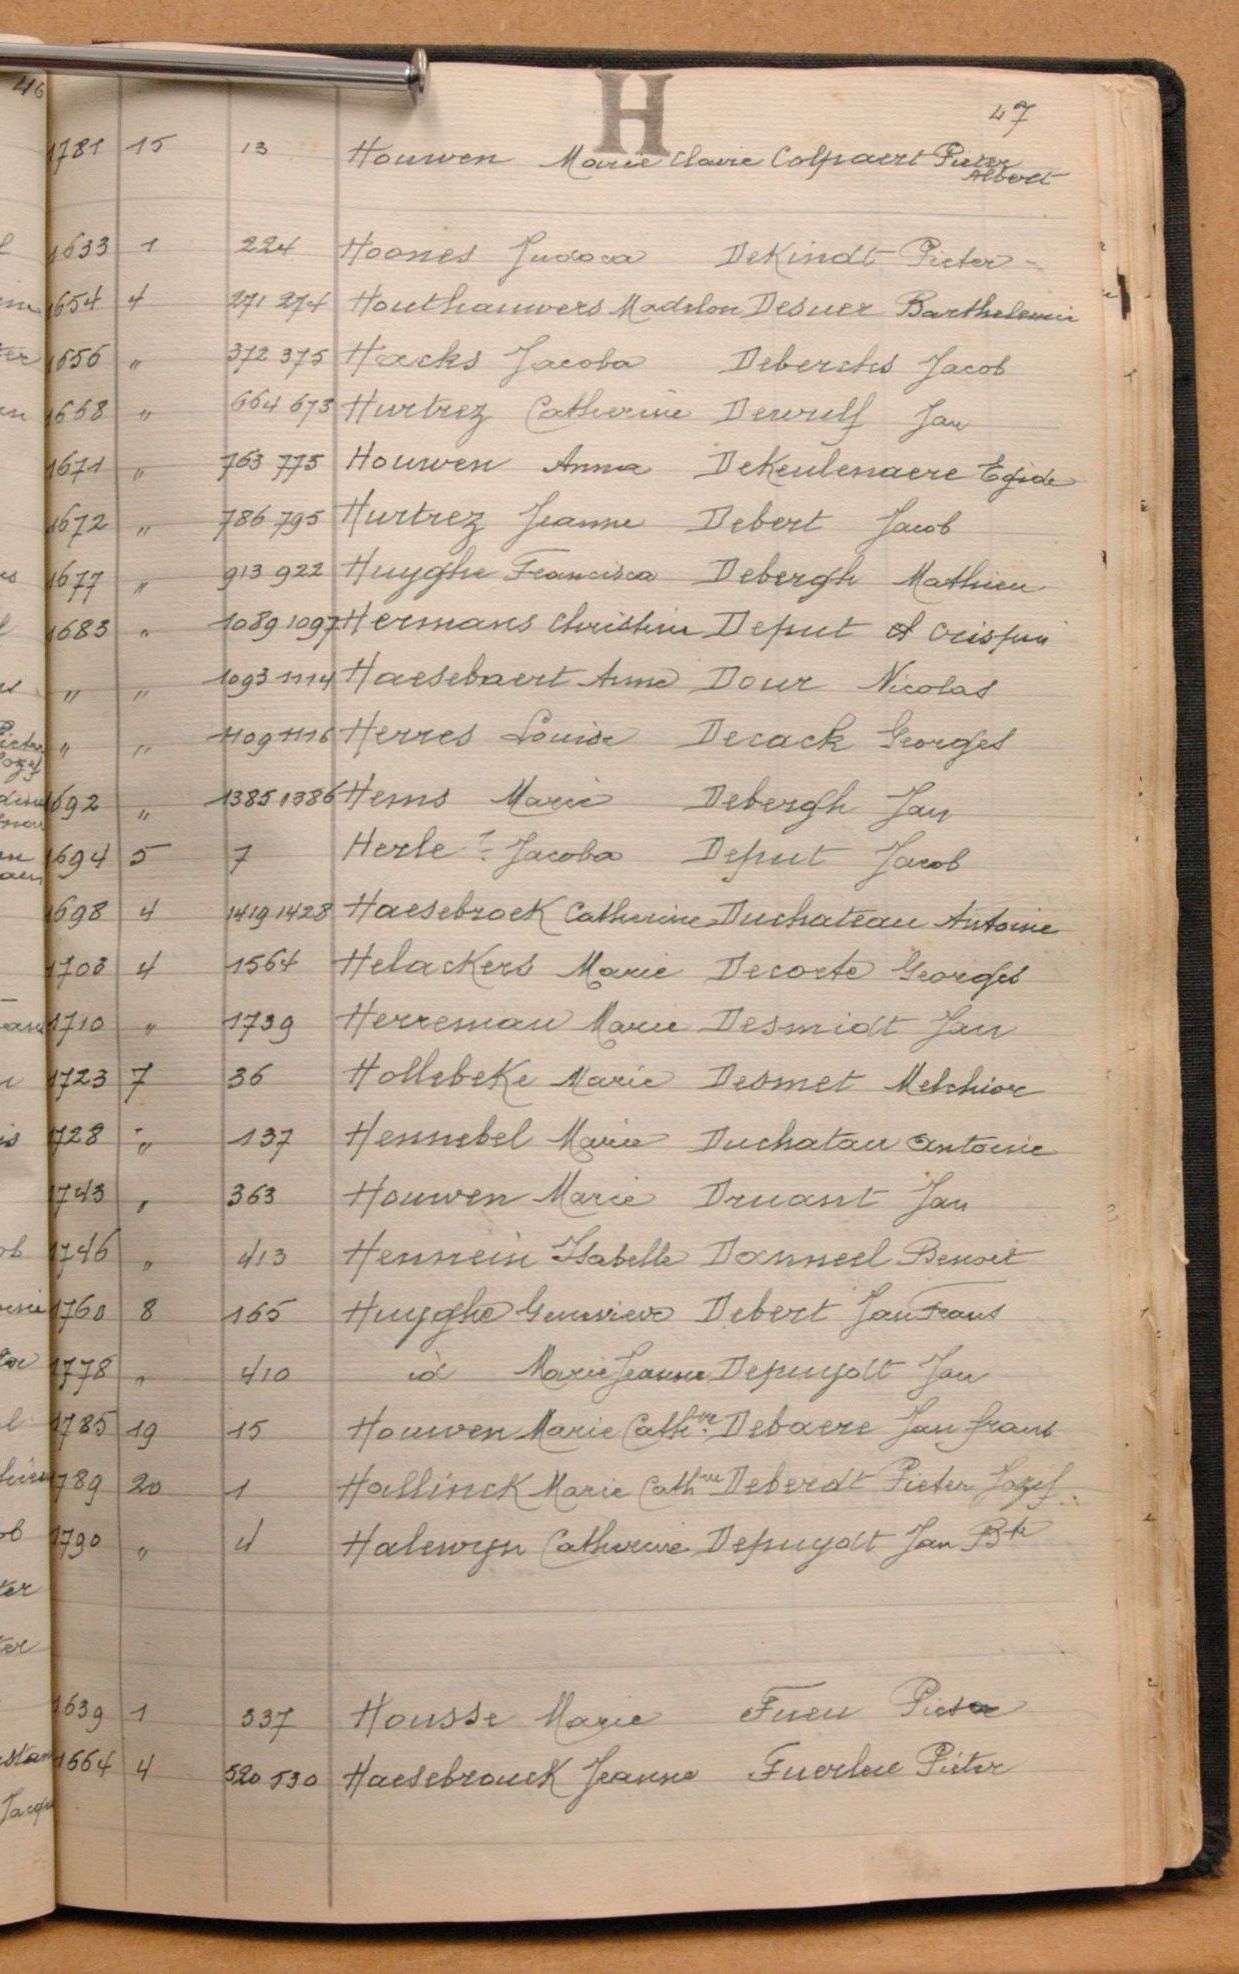 46
H
47
1781 15 13 Houwen Marie Claire Colpaert Pieter
Albert
1633 1 224 Hoones Judoca DeKindt Pieter
1654 4 271 274 Houthauwers Madelon Desuer Barthelemie
1656 " 372 375 Hacks Jacoba Deberchs Jacob
1668 " 664 673 Hurtrez Catherine Dewulf Jan
1671 " 763 775 Houwen Anna DeKeulenaere Egide
1672 " 786 795 Hurtrez Jeanne Debert Jacob
1677 " 913 922 Huyghe Francisca Debergh Mathieu
1683 " 1089 1097 Hermans Christine Deput Crispin
" " 1093 1114 Haesebaert Anne Dour Nicolas
" " 1109 1116 Herres Louise Decack Georges
1692 " 1385 1386 Hems Marie Debergh Jan
1694 5 7 Herle ? Jacoba Deput Jacob
1698 4 1419 1428 Haesebroek Catherine Duchateau Antoine
1703 4 1564 Helackers Marie Decorte Georges
1710 " 1739 Herreman Marie Desmidt Jan
1723 7 36 Hollebeke Marie Desmet Melchior
1728 " 137 Hennebel Marie Duchatau Antoine
1743 " 363 Houwen Marie Druant Jan
1746 " 413 Hennein Isabelle Danneel Benoit
1760 8 165 Huyghe Genevieve Debert Jan Frans
1778 " 410 id Marie Jeanne Depuydt Jan
1785 19 15 Houwen Marie Cathne Debaere Jan frans
1789 20 1 Hallinck Marie Cathne Deberdt Pieter Jozef
1790 " 4 Halewyn Catherine Depuydt Jan Bte
1639 1 337 Housse Marie Fueu Pieter
1664 4 520 530 Haesebrouck Jeanne Fuerlue Pieter